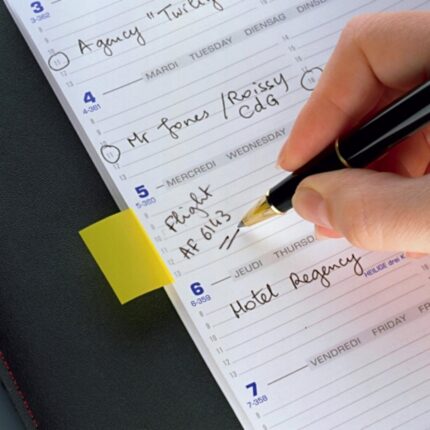 3
3-362
Agency "Twicky
11
MARDI TUESDAY DIENSTAG DINS
4
4-361
Mr Jones / Roissy
CDG
11
MERCREDI WEDNESDAY
5
5-360
Flight
AF 6143
JEUDI THURSD
6
6-359
HEILIGE drei K
Hotel Regency
VENDREDI FRIDAY F
7
7-358